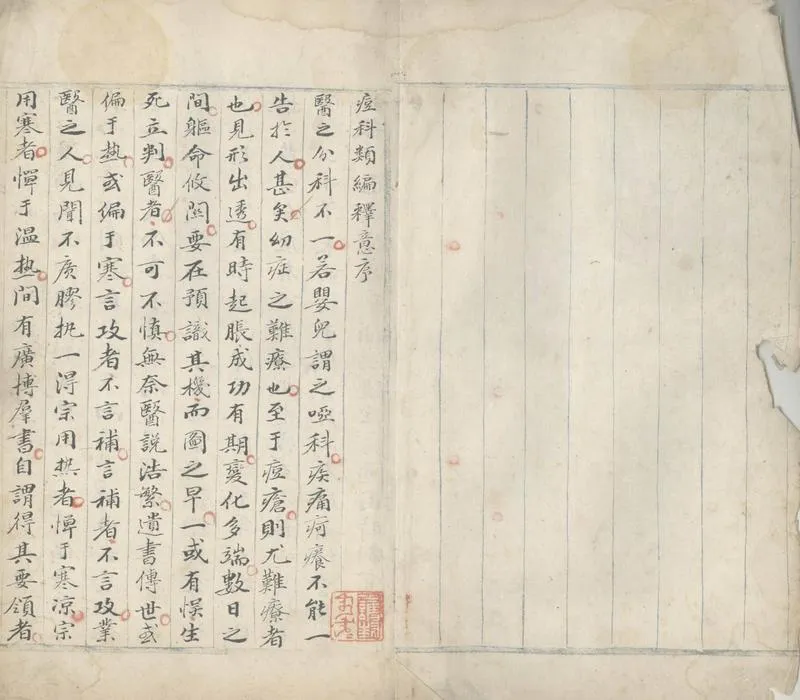 痘科類編釋意序
醫之分科不一若嬰兒謂之啞科疾痛疴癢不能一
告於人甚矣幼症之難療也至于痘瘡則尤難療者
也見形出透有時起脹成功有期變化多端數日之
間軀命攸關要在預識其機而圖之早一或有悞生
死立判醫者不可不慎無奈醫說浩繁遺書傳世或
偏于熱或偏于寒言攻者不言補言補者不言攻業
醫之人見聞不廣膠執一得宗用熱者憚于寒凉宗
用寒者憚于温熱間有廣搏羣書自謂得其要領者